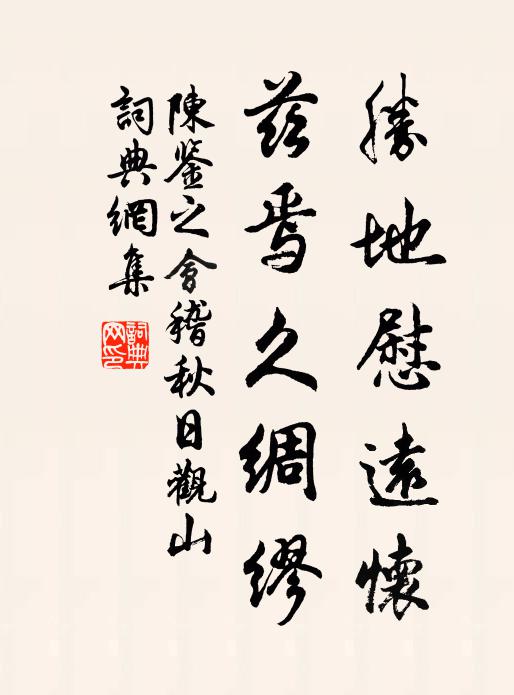 勝地慰遠懷
茲焉久綢繆
陳鑒之會稽秋日觀山
詞典網集
詞典網印